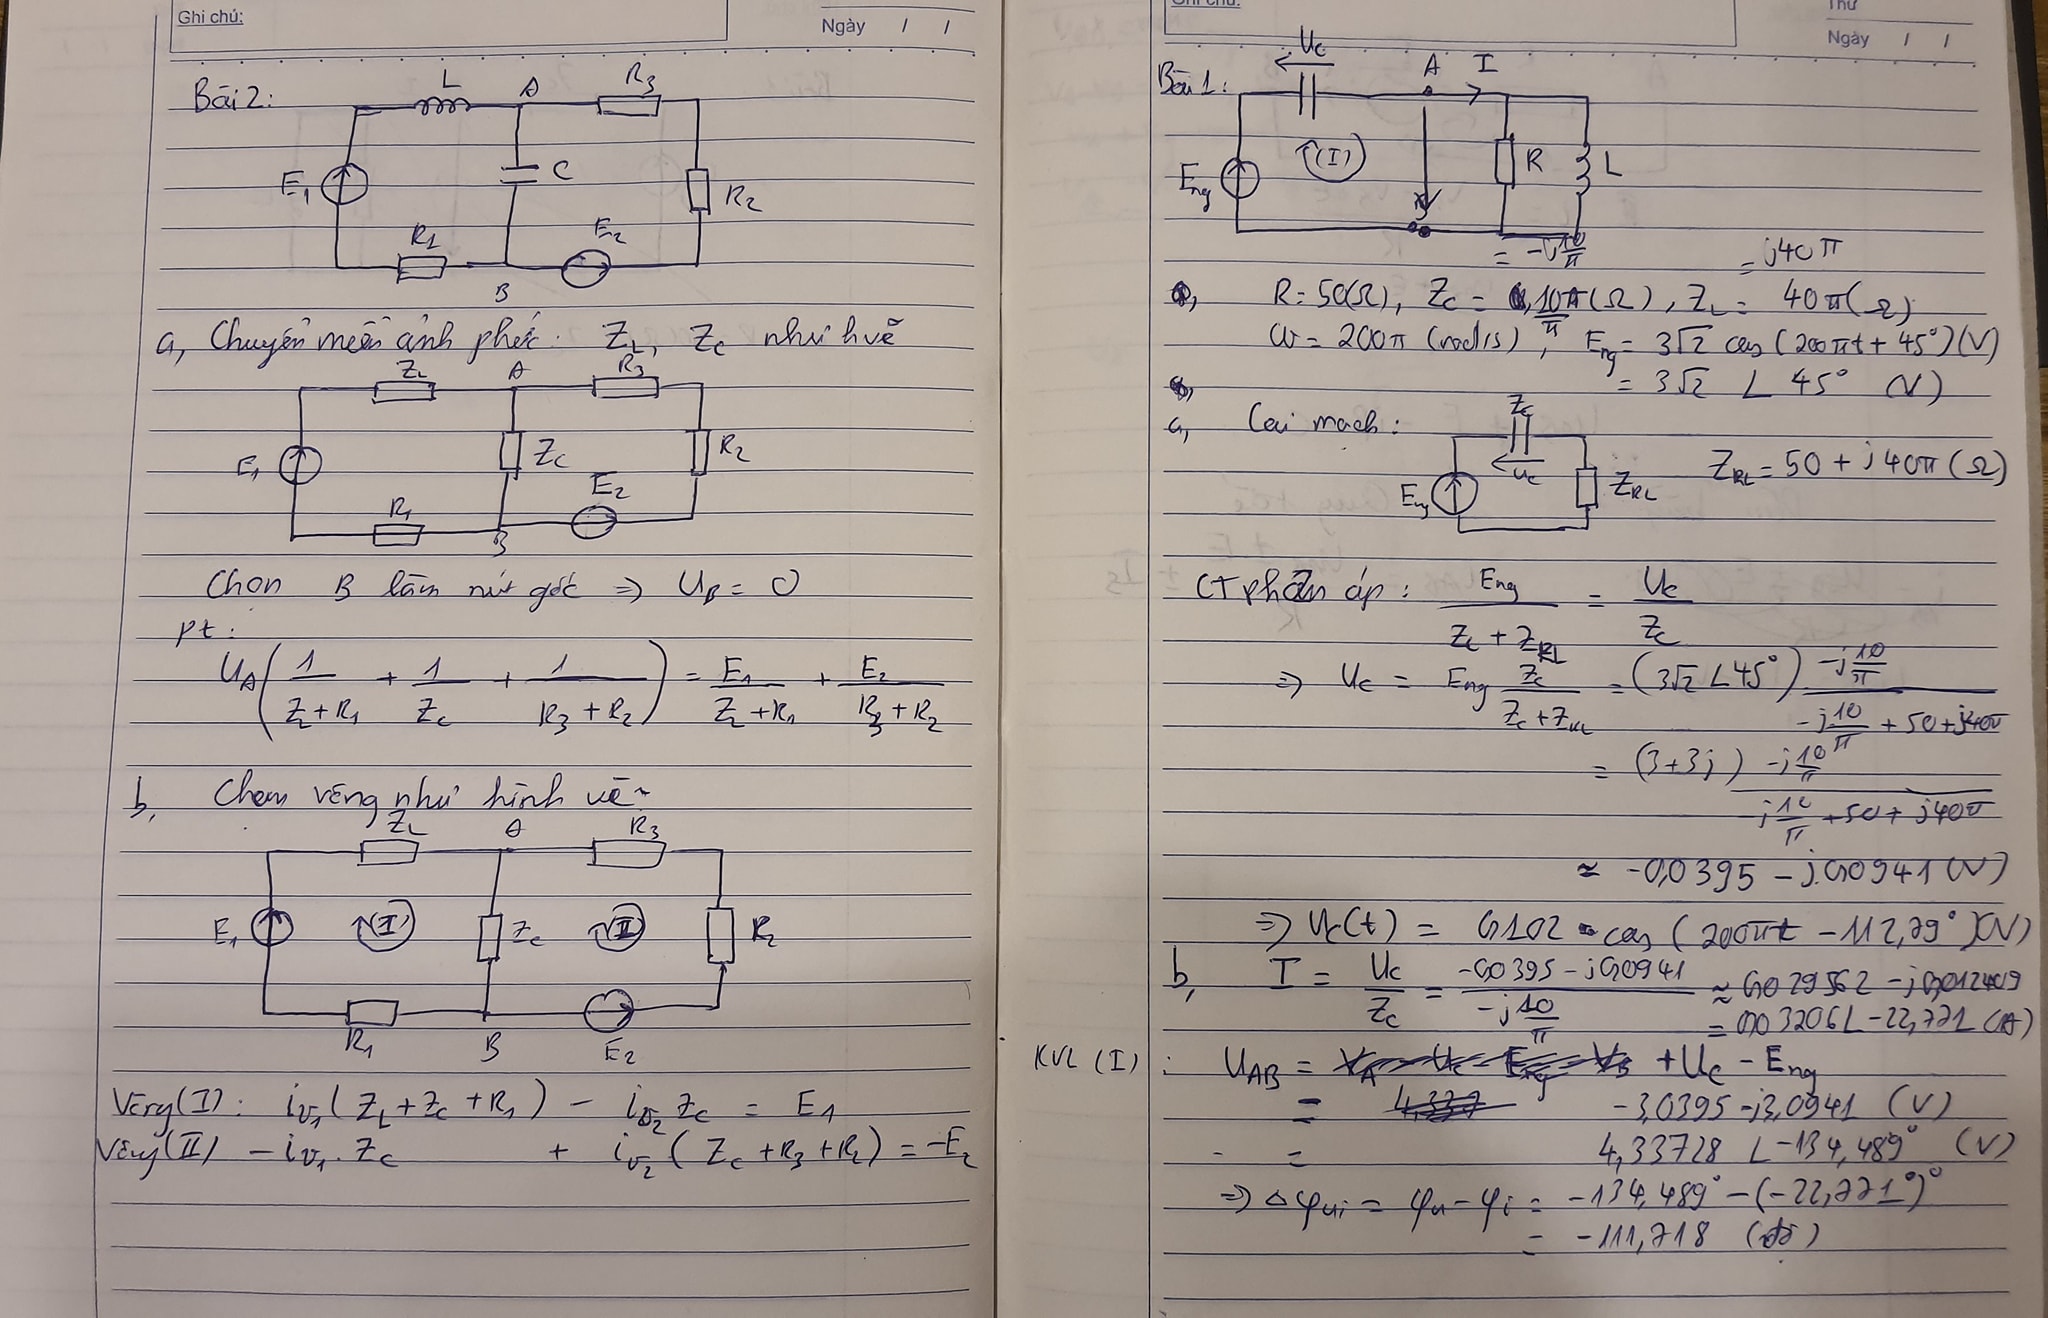 Ghi chú:
Ngày / /
Bài 2:
L
A
R3
E1
C
R2
R1
E2
B
a, Chuyển miền ảnh phức: ZL, ZC như hvẽ
ZL
A
R3
E1
ZC
R2
R1
E2
B
Chọn B làm nút gốc => UB = 0
pt:
UA(1/(ZL+R1) + 1/ZC + 1/(R3+R2)) = E1/(ZL+R1) + E2/(R3+R2)
b, Chọn vòng như hình vẽ
ZL
A
R3
E1
(I)
ZC
(II)
R2
R1
B
E2
Vòng (I): iv1(ZL+ZC+R1) - iv2 ZC = E1
Vòng (II) -iv1.ZC + iv2(ZC+R3+R2) = -E2
Ghi chú:
Thứ
Ngày / /
Bài 1:
UC
A
I
Eng
(I)
R
L
= -j10/π
= j40π
R = 50(Ω), ZC = 10/π (Ω), ZL = 40π(Ω)
ω = 200π (rad/s), Eng = 3√2 cos(200πt + 45°)(V)
= 3√2 ∠ 45° (V)
a, Coi mạch:
ZC
UC
Eng
ZRL
ZRL = 50 + j40π (Ω)
CT phân áp: Eng/(ZC + ZRL) = UC/ZC
=> UC = Eng ZC/(ZC+ZRL) = (3√2∠45°) (-j10/π)/(-j10/π + 50 + j40π)
= (3+3j) (-j10/π)/(-j10/π + 50 + j40π)
≈ -0,0395 - j.0,0941 (V)
=> UC(t) = 0,102 cos(200πt - 112,79°)(V)
b, I = UC/ZC = (-0,0395 - j0,0941)/(-j10/π) ≈ 0,029562 - j0,012409
= 0,03206∠-22,771 (A)
KVL (I): UAB = +UC - Eng
= -3,0395 - j3,0941 (V)
= 4,33728 ∠-134,489° (V)
=> Δφui = φu - φi = -134,489° - (-22,771°)°
= -111,718 (độ)